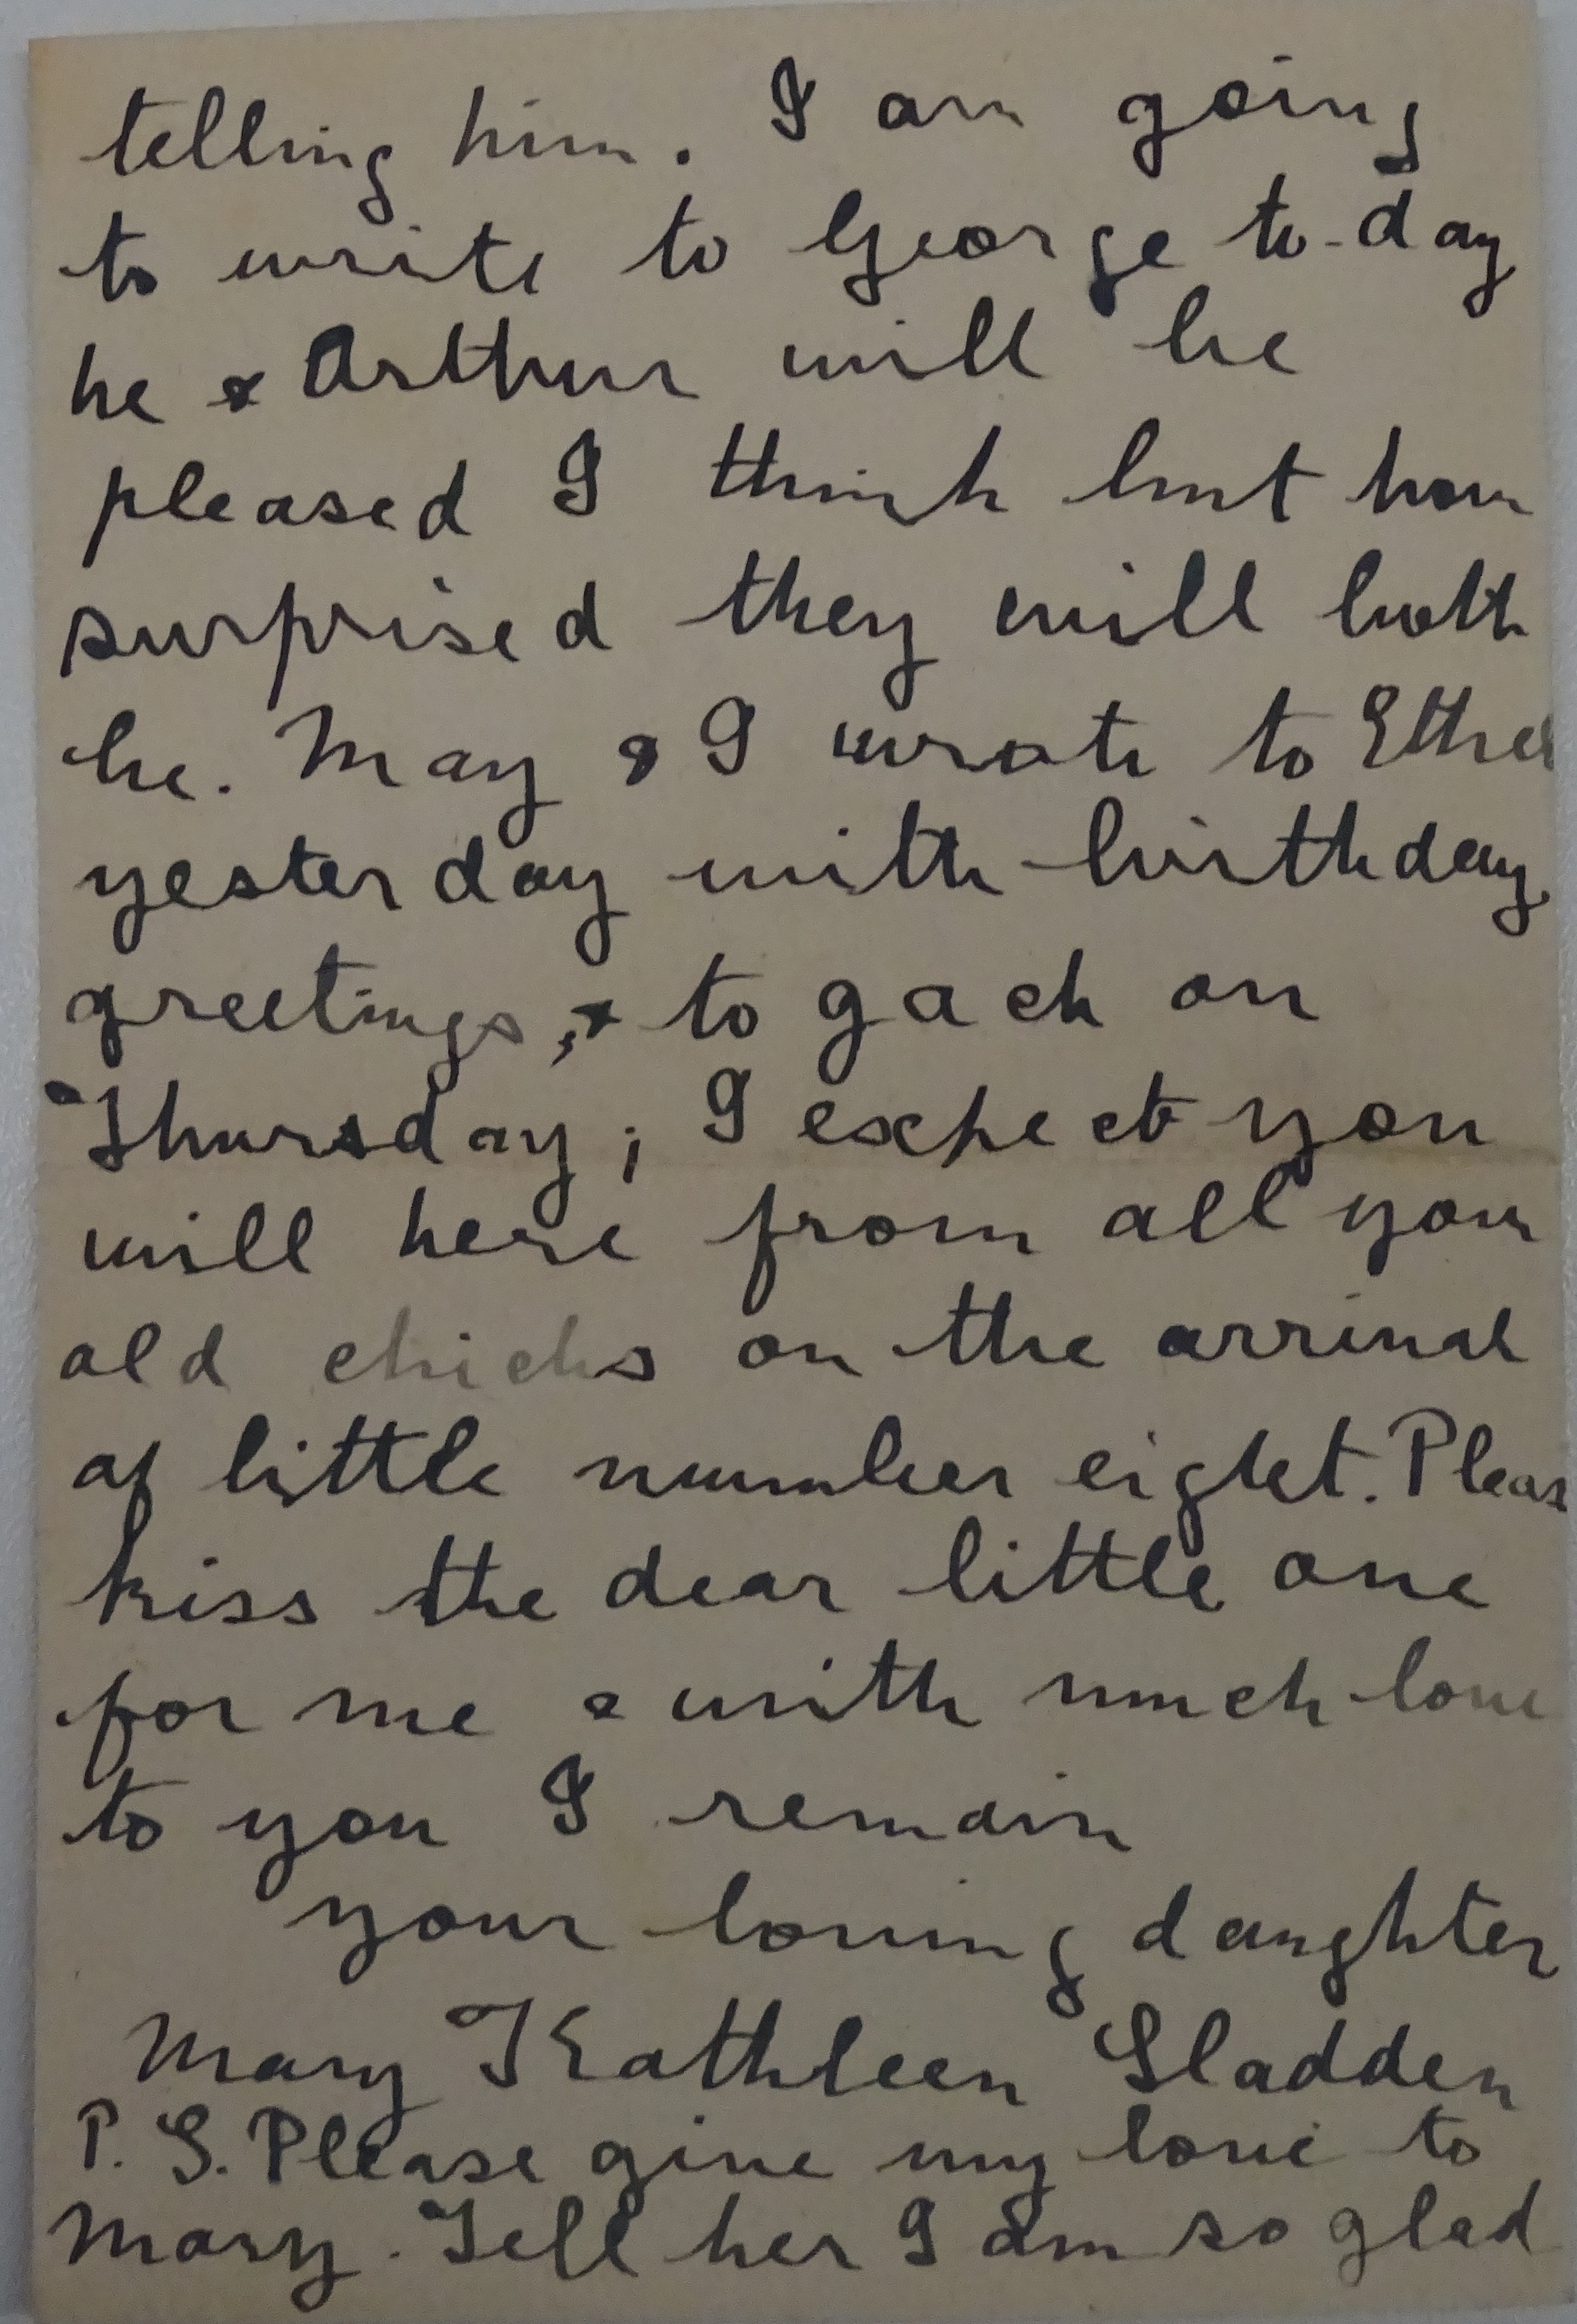 telling him. I am going
to write to George to-day
he & Arthur will be
pleased I think but how
surprised they will both
be. May & I wrote to Ethel
yesterday with birthday
greetings, & to Jack on
Thursday; I expect you
will here from all your
old chicks on the arrival
of little number eight. Please
kiss the dear little one
for me & with much love
to you I remain
your loving daughter
Mary Kathleen Sladden
P. S. Please give my love to
Mary. Tell her I am so glad